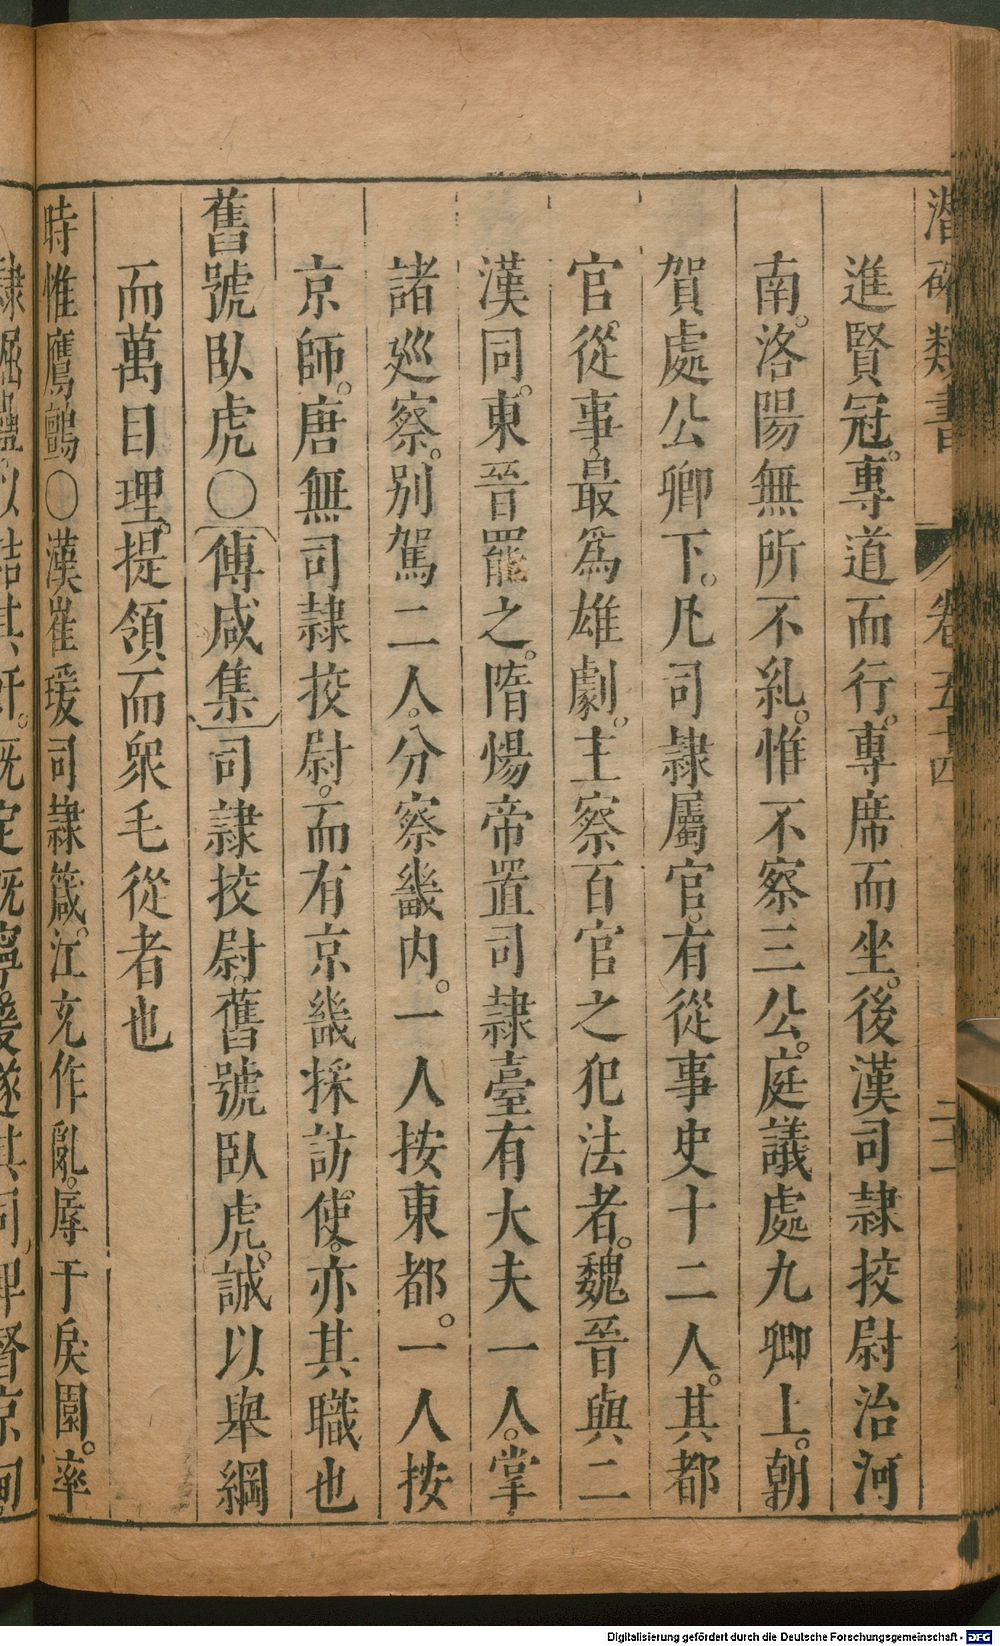 潛確類書
卷五十四
二十一
進賢冠。專道而行。專席而坐。後漢司隷挍尉治河
南。洛陽無所不糺。惟不察三公。庭議處九卿上。朝
賀處公卿下。凡司隷屬官。有從事史十二人。其都
官從事。最爲雄劇。主察百官之犯法者。魏晉與二
漢同。東晉罷之。隋煬帝置司隷臺有大夫一人。掌
諸廵察。别駕二人。分察畿内。一人按東都。一人按
京師。唐無司隷挍尉。而有京畿採訪使。亦其職也
舊號臥虎〇傅咸集司隷挍尉。舊號臥虎。誠以舉綱
而萬目理。提領而衆毛從者也
時惟鷹鸇〇漢崔瑗司隷箴。江充作亂。辱于戾園。率
以詰其奸。既定既寧。爰遂其司。俾督京甸。
Digitalisierung gefördert durch die Deutsche Forschungsgemeinschaft - DFG